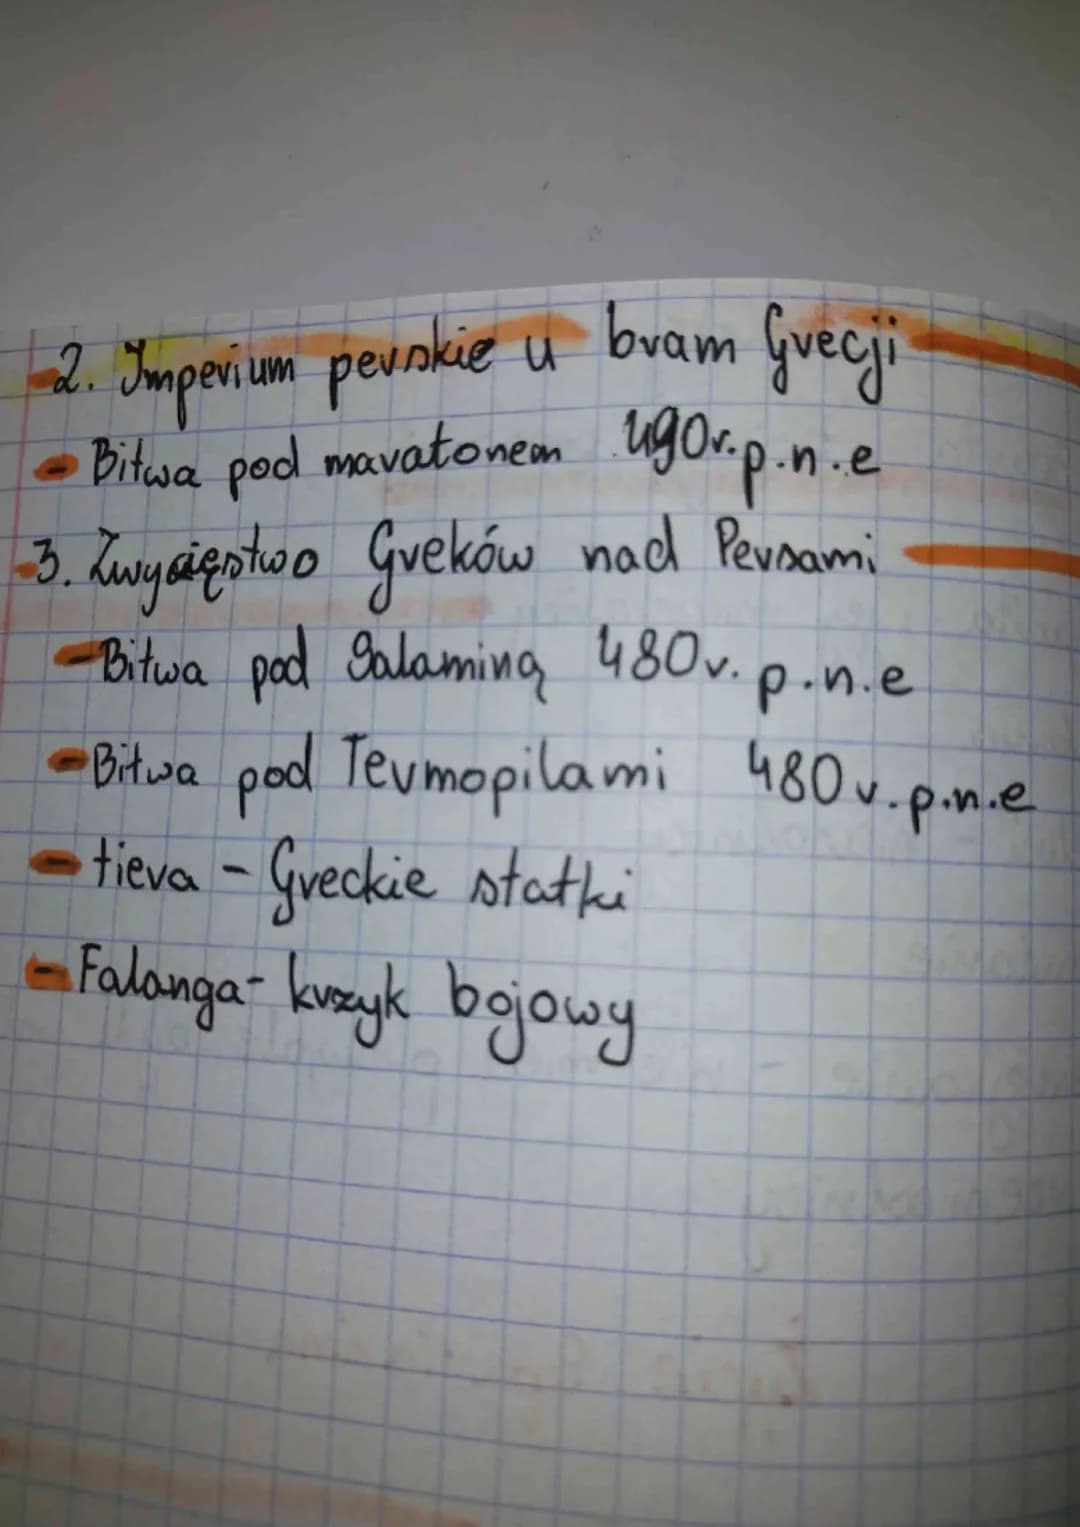 2. Imperium perskie u bram Grecji
- Bitwa pod maratonem 490r.p.n.e
3. Zwycięstwo Greków nad Persami
- Bitwa pod Salaminą 480r. p.n.e
- Bitwa pod Termopilami 480r.p.n.e
- tiera - Greckie statki
- Falanga - krzyk bojowy